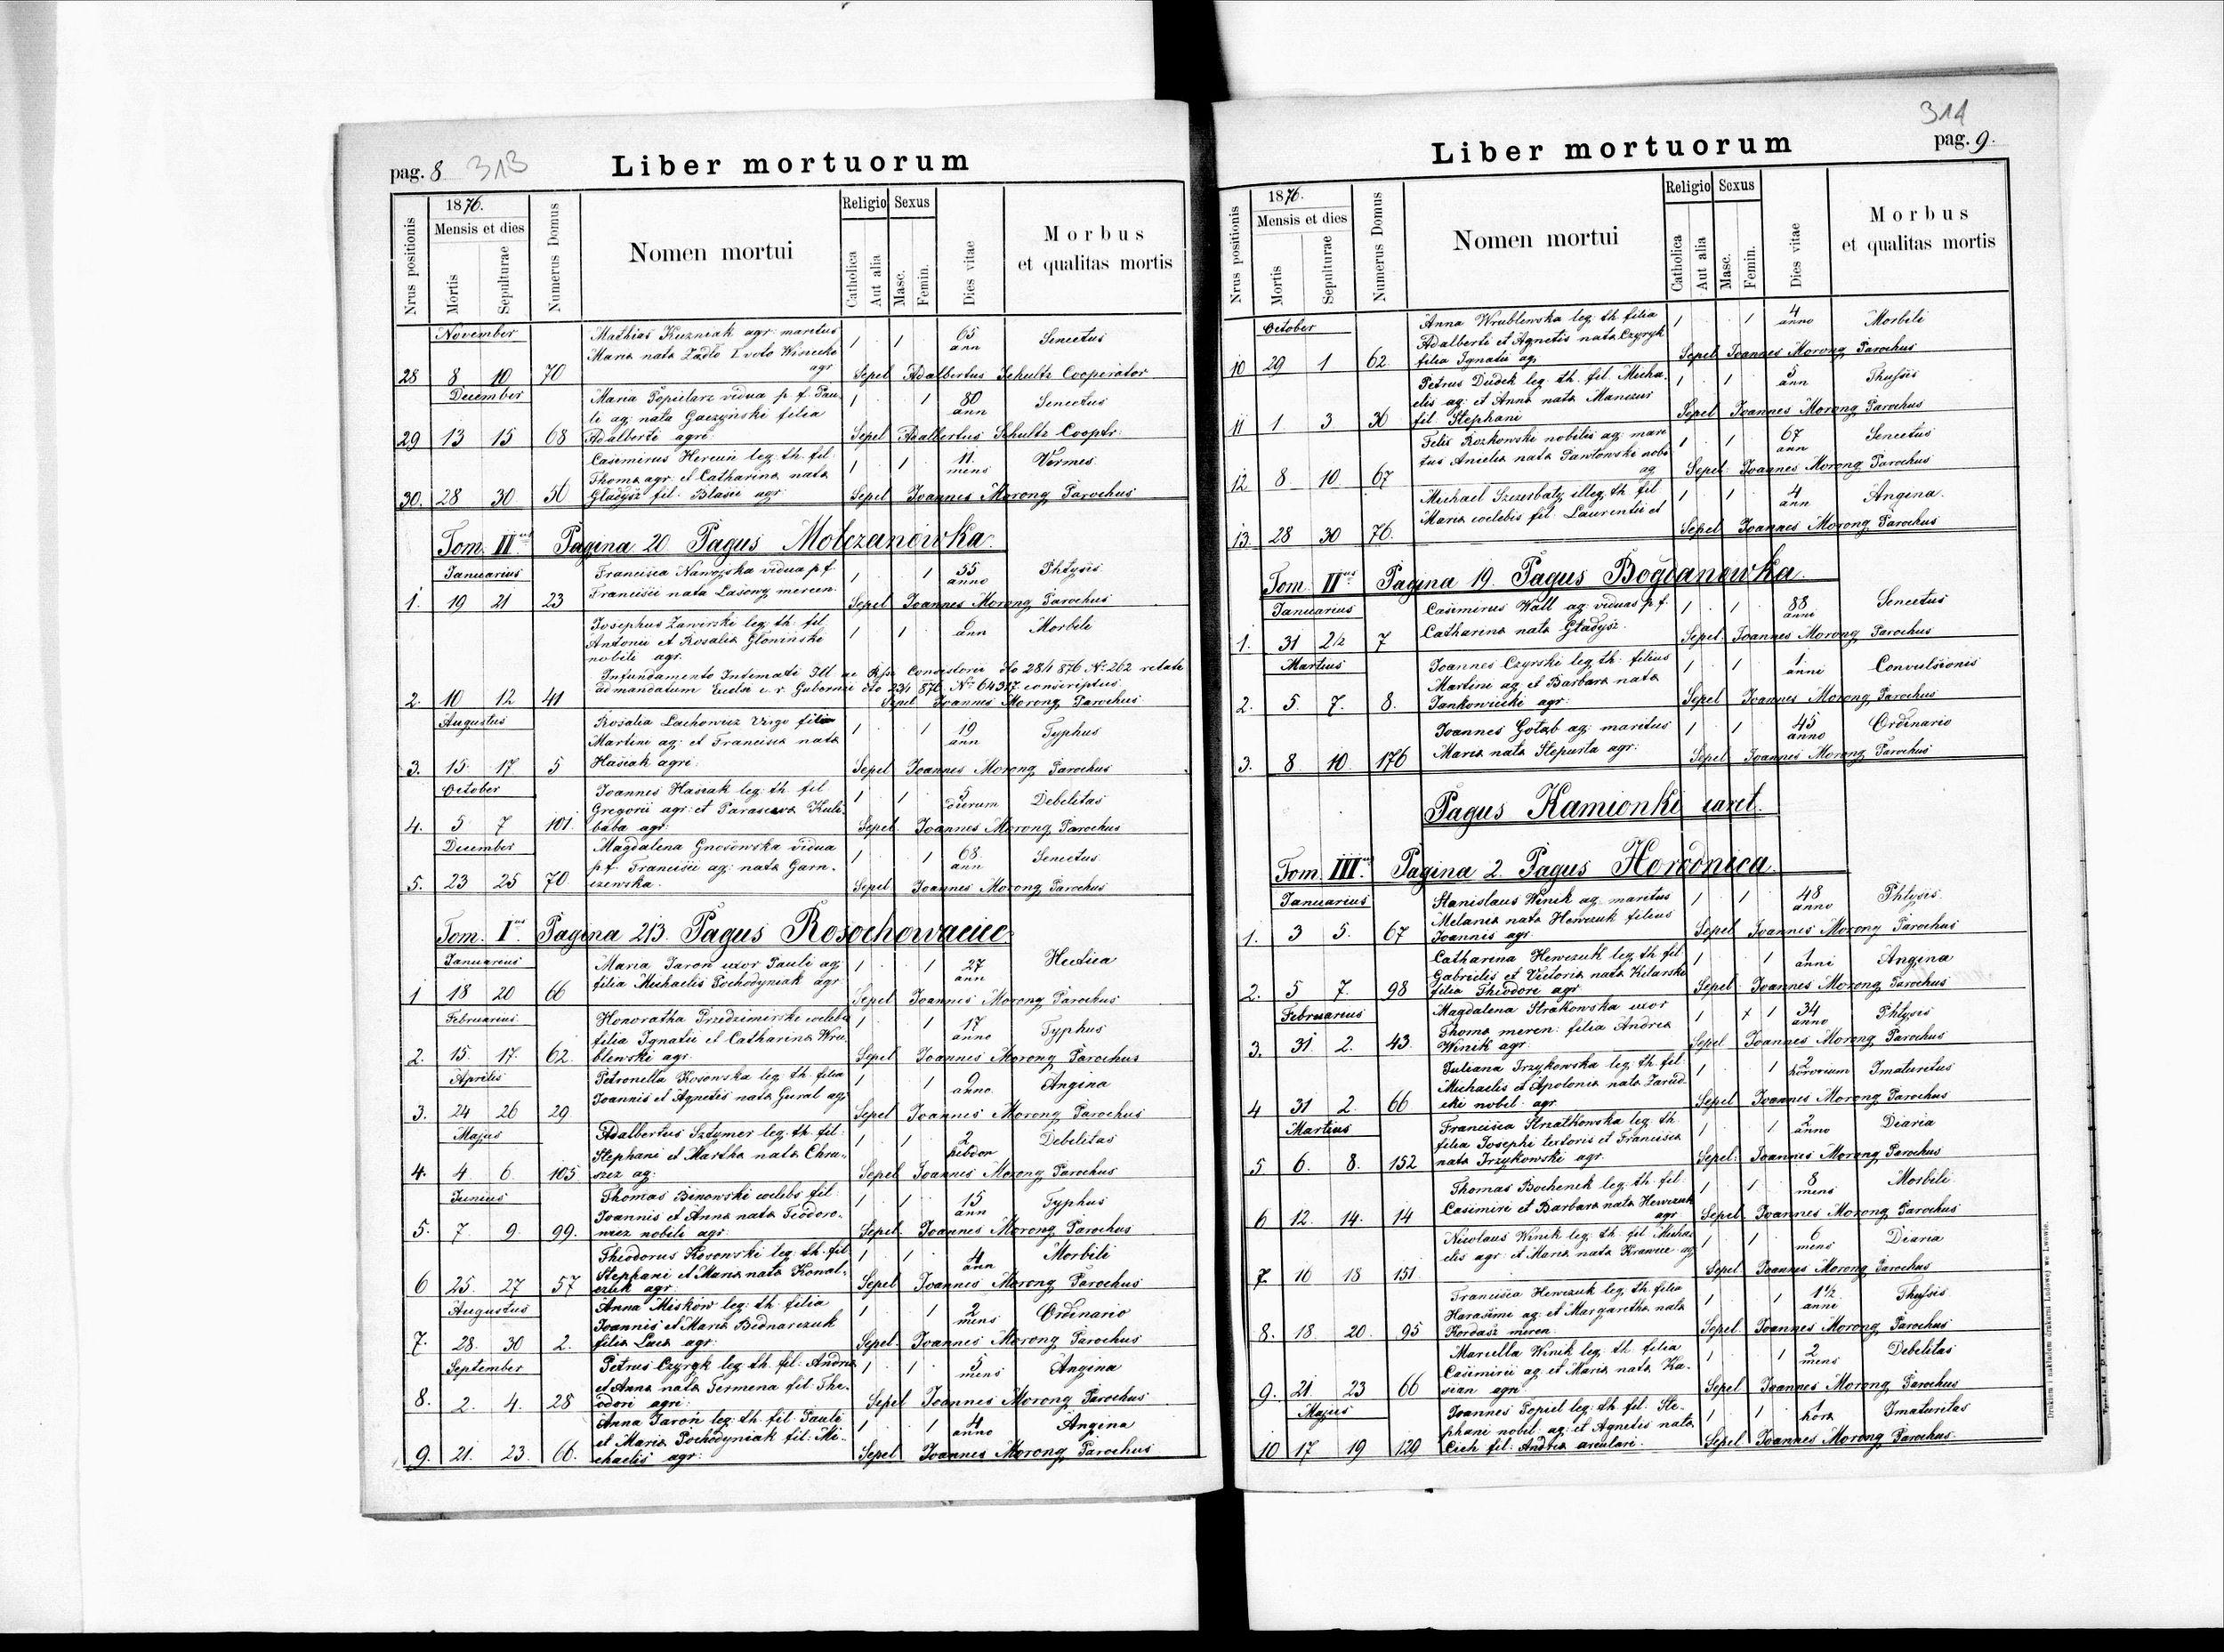 pag. 8 313
Liber mortuorum
Nrus positionis
1876.
Mensis et dies
Mortis
Sepulturae
Numerus Domus
Nomen mortui
Religio
Catholica
Aut alia
Sexus
Masc.
Femin.
Dies vitae
Morbus
et qualitas mortis
November
Mathias Kuzniak agr: maritus 1 1 65 Senectus
Maria nata Żadło I voto Winecko ann
agr
28 8 10 70 Sepel Adalbertus Schultz Cooperator
December
Maria Popielarz vidua p. f. Pau- 1 1 80 Senectus
li ag: nata Gaczyński filia ann
29 13 15 68 Adalberti agri: Sepel Adalbertus Schultz Cooptr:
Casimirus Hercuń leg: th. fil 1 1 11. Vermes
Thoma agr: et Catharina nata mens
30. 28 30 50 Gładysz fil. Blasii agr: Sepel Joannes Morong Parochus
Tom. II Pagina 20 Pagus Mołczanówka.
Januarius
Francisca Nawojska vidua p f. 1 1 55 Phtysis
anno
1. 19 21 23 Francisci nata Lasowy mercen. Sepel Joannes Morong Parochus
Josephus Zawirski leg: th. fil 1 1 6 Morbili
Antonii et Rosalia Głoniński ann
nobili agr.
Infundamento Intimati Ill ac Rssi Consistorii dto 28/4 876 No 262 relate
ad mandatum Excelsi c. r. Gubernii dto 23/1 876 No 64317 conscriptus
2. 10 12 41 Sepel Joannes Morong Parochus
Augustus
Rosalia Lachowicz Virgo filia 1 1 19 Typhus
Martini ag: et Francisca nata ann
3. 15 17 5 Hasiak agri: Sepel Joannes Morong Parochus
October
Joannes Hasiak leg: th. fil 1 1 5 Debilitas
Gregorii agr: et Parasceva Kuli- dierum
4. 5 7 101. baba agr: Sepel. Joannes Morong Parochus
December
Magdalena Gnosowska vidua 1 1 68 Senectus
p f. Francisci ag: nata Garn- ann
5. 23 25 70 czewska. Sepel Joannes Morong Parochus
Tom. I Pagina 213. Pagus Rosochowaciec
Januarius
Maria Jaroń uxor Pauli ag: 1 1 27 Hectica
filia Michaelis Pochodyniak agr: ann
1 18 20 66 Sepel Joannes Morong Parochus
Februarius
Honoratha Przedzimirska coelebs 1 1 17 Typhus
filia Ignatii et Catharina Wru- anno
2. 15. 17. 62. blewski agr: Sepel Joannes Morong Parochus
Aprilis
Petronella Kosowska leg. th. filia 1 1 9 Angina
Joannis et Agnetis nata Gural ag: anno
3. 24 26 29 Sepel Joannes Morong Parochus
Majus
Adalbertus Sztymer leg: th. fil: 1 1 2 Debilitas
Stephani et Martha nata Chru- hebdom
4. 4 6 105 szcz ag: Sepel Joannes Morong Parochus
Junius
Thomas Binowski coelebs fil: 1 1 15 Typhus
Joannis et Anna nata Teodoro- ann
5. 7. 9. 99. wicz nobili agr: Sepel. Joannes Morong Parochus
Theodorus Kosowski leg: th. fil 1 1 4 Morbili
Stephani et Maria nata Kowal- ann
6 25. 27 57 czuk agr: Sepel Joannes Morong Parochus
Augustus
Anna Miskow leg: th filia 1 1 2 Ordinario
Joannis et Maria Bednarczuk mens
7. 28. 30 2. filia Luca agr: Sepel. Joannes Morong Parochus
September
Petrus Czyryk leg: th. fil: Andrea 1 1 5 Angina
et Anna nata Termena fil: The- mens
8. 2. 4. 28 odori agri: Sepel Joannes Morong Parochus
Anna Jaroń leg: th. fil: Pauli 1 1 4 Angina
et Maria Pochodyniak fil: Mi- anno
9. 21. 23. 66. chaelis agr: Sepel Joannes Morong Parochus
314
Liber mortuorum
pag. 9.
Nrus positionis
1876.
Mensis et dies
Mortis
Sepulturae
Numerus Domus
Nomen mortui
Religio
Catholica
Aut alia
Sexus
Masc.
Femin.
Dies vitae
Morbus
et qualitas mortis
October
Anna Wrublewska leg: th filia 1 1 4 Morbili
Adalberti et Agnetis nata Czyryk anno
10 29 1 62. filia Ignatii ag: Sepel Joannes Morong Parochus
Petrus Dudek leg: th. fil. Micha- 1 1 5 Thussis
elis ag: et Anna nata Manczur ann
11 1 3 36 fil: Stephani Sepel Joannes Morong Parochus
Felix Rozkowski nobilis ag: mari- 1 1 67 Senectus
tus Aniela nata Pawłowski nobi ann
ag
12 8 10 67 Sepel: Joannes Morong Parochus
Michael Szczerbaty illeg. th. fil 1 1 4 Angina.
Maria coelebis fil: Laurentii et ann
13. 28 30 76. Sepel Joannes Morong Parochus
Tom. II Pagina 19. Pagus Bogdanówka.
Januarius
Casimirus Wall ag: viduas p. f. 1 1 88 Senectus
anni
1. 31 2/2 7 Catharina nata Gładysz. Sepel. Joannes Morong Parochus
Martius
Joannes Czyrski leg: th: filius 1 1 1 Convulsionis
Martini ag. et Barbara nata anni
2. 5. 7. 8. Jankowicki agr: Sepel Joannes Morong Parochus
Joannes Gołąb ag: maritus 1 1 45 Ordinario
anno
3. 8 10. 176 Maria nata Stepurta agr: Sepel Joannes Morong Parochus
Pagus Kamionki caret.
Tom. III Pagina 2. Pagus Horodnica.
Januarius
Stanislaus Winik ag. maritus 1 1 48 Phtysis
Melania nata Hewczuk filius anno
1. 3 5. 67 Joannis agr: Sepel Joannes Morong Parochus
Catharina Hewczuk leg: th. fil: 1 1 1 Angina
Gabrielis et Victoria nata Kilarski anni
2. 5 7. 98 filia Theodori agr Sepel Joannes Morong Parochus
Februarius
Magdalena Strakowska uxor 1 x 1 34 Phtysis
Thoma meren: filia Andrea anno
3. 31 2. 43 Winik agr: Sepel Joannes Morong Parochus
Juliana Trzykowska leg: th. fil: 1 1 2 Imaturitus
Michaelis et Apolonia nata Zarud- horarium
4 31 2. 66 cki nobil. agr. Sepel Joannes Morong Parochus
Martius
Francisca Strzałkowska leg. th. 1 1 2 Diaria
filia Josephi textoris et Francisca anno
5 6. 8. 152 nata Trzykowski agr. Sepel: Joannes Morong Parochus
Thomas Bochenek leg: th. fil: 1 1 8 Morbili
Casimiri et Barbara nata Hewczuk mens
agr
6 12. 14. 14 Sepel Joannes Morong Parochus
Nicolaus Winik leg: th. fil Micha- 1 1 6 Diaria
elis agr: et Maria nata Krawiec ag: mens
7. 16 18 151 Sepel Joannes Morong Parochus
Francisca Hewczuk leg. th. filia 1 1 1 1/2 Thussis
Harasimi ag: et Margaretha nata anni
8. 18. 20. 95 Kordasz meren: Sepel. Joannes Morong Parochus
Mariella Winik leg. th. filia 1 1 2 Debilitas
Casimirii ag. et Maria nata Ka- mens
9. 21 23 66 sian agri Sepel Joannes Morong Parochus
Majus
Joannes Popiel leg: th. fil. Ste- 1 1 1 Imaturitas
phani nobil. ag: et Agnetis nata hora
10 17 19 120 Cich fil: Andrea arculari. Sepel Joannes Morong Parochus
Drukiem i nakładem drukarni Ludowej we Lwowie.